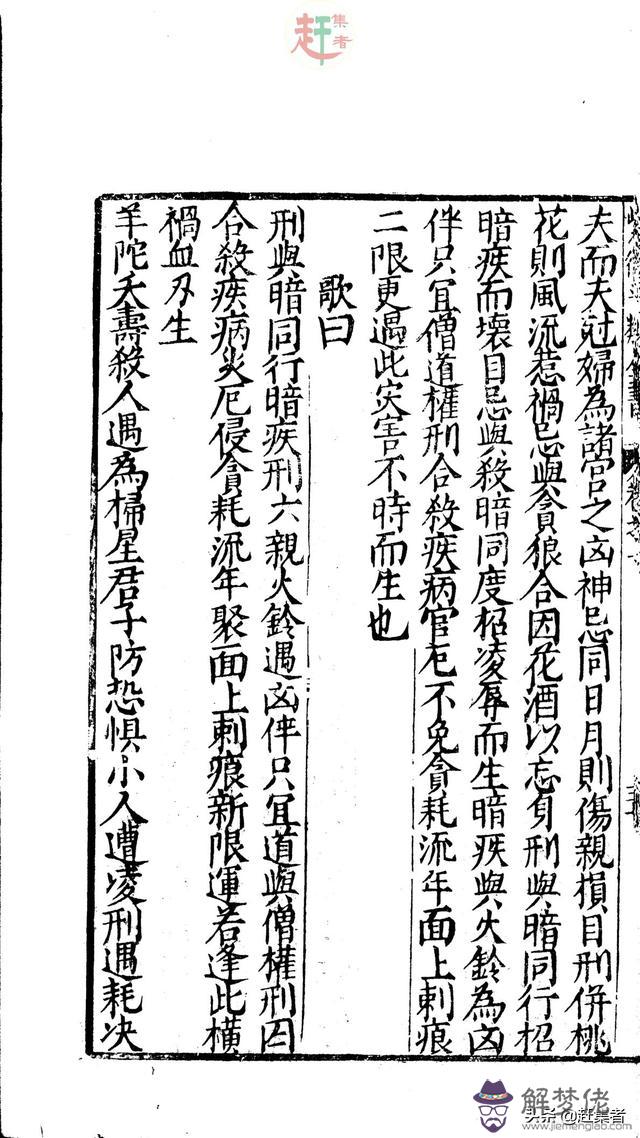 赶集者
夫而夫尅婦為諸宮之凶神忌同日月則傷親損目刑併桃
花則風流惹禍忌與貪狼合因花酒以忘身刑與暗同行招
暗疾而壞目忌與殺暗同度招凌辱而生暗疾與火鈴為凶
伴只宜僧道權刑合殺疾病官厄不免貪耗流年面上刺痕
二限更遇此災害不時而生也
歌曰
刑與暗同行暗疾刑六親火鈴遇凶伴只宜道與僧權刑囚
合殺疾病災厄侵貪耗流年聚面上刺痕新限運若逢此橫
禍血刃生
羊陀夭壽殺人遇為掃星君子防恐懼小人遭凌刑遇耗决
解梦佬
头条@赶集者
www.jiemenglabo.com